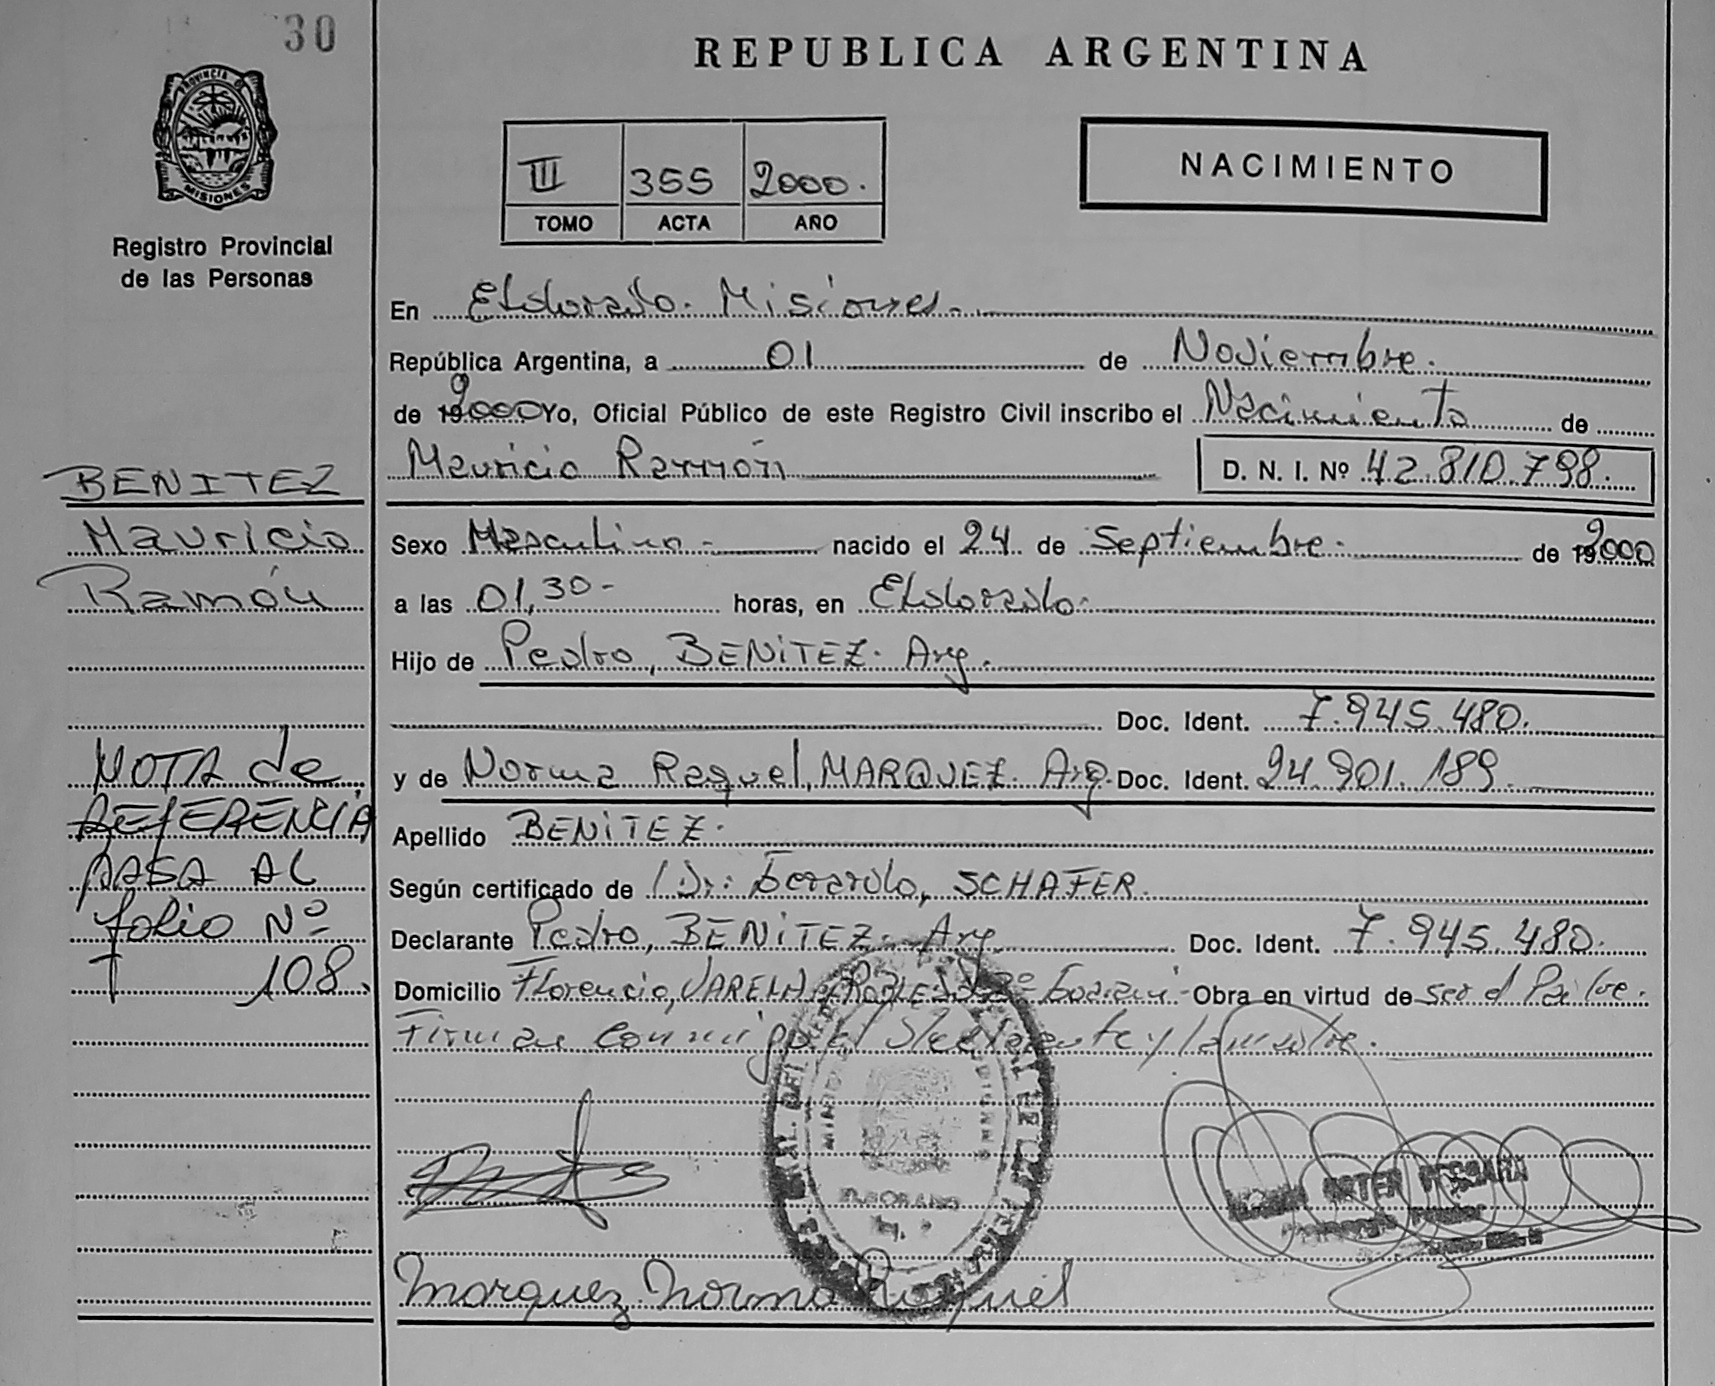 30
REPUBLICA ARGENTINA
PROVINCIA DE
MISIONES
Registro Provincial
de las Personas
III 355 2000.
TOMO ACTA AÑO
NACIMIENTO
En Eldorado. Misiones.
República Argentina, a 01 de Noviembre.
de 2000 Yo, Oficial Público de este Registro Civil inscribo el Nacimiento de
Mauricio Ramón D. N. I. Nº 42.810.798.
BENITEZ
Mauricio
Ramón
Sexo Masculino - nacido el 24 de Septiembre. de 2000
a las 01,30- horas, en Eldorado.
Hijo de Pedro, BENITEZ. Arg.
Doc. Ident. 7.945.480.
y de Norma Raquel, MARQUEZ. Arg. Doc. Ident. 24.901.189.
Apellido BENITEZ.
Según certificado de Dr: Gerardo, SCHAFER.
Declarante Pedro, BENITEZ. Arg. Doc. Ident. 7.945.480.
Domicilio Florencio, VARELA Obra en virtud de ser el Padre.
Firman conmigo el declarante y la madre.
NOTA de
REFERENCIA
PASA AL
folio Nº
108.
ELDORADO
Marquez Norma Raquel